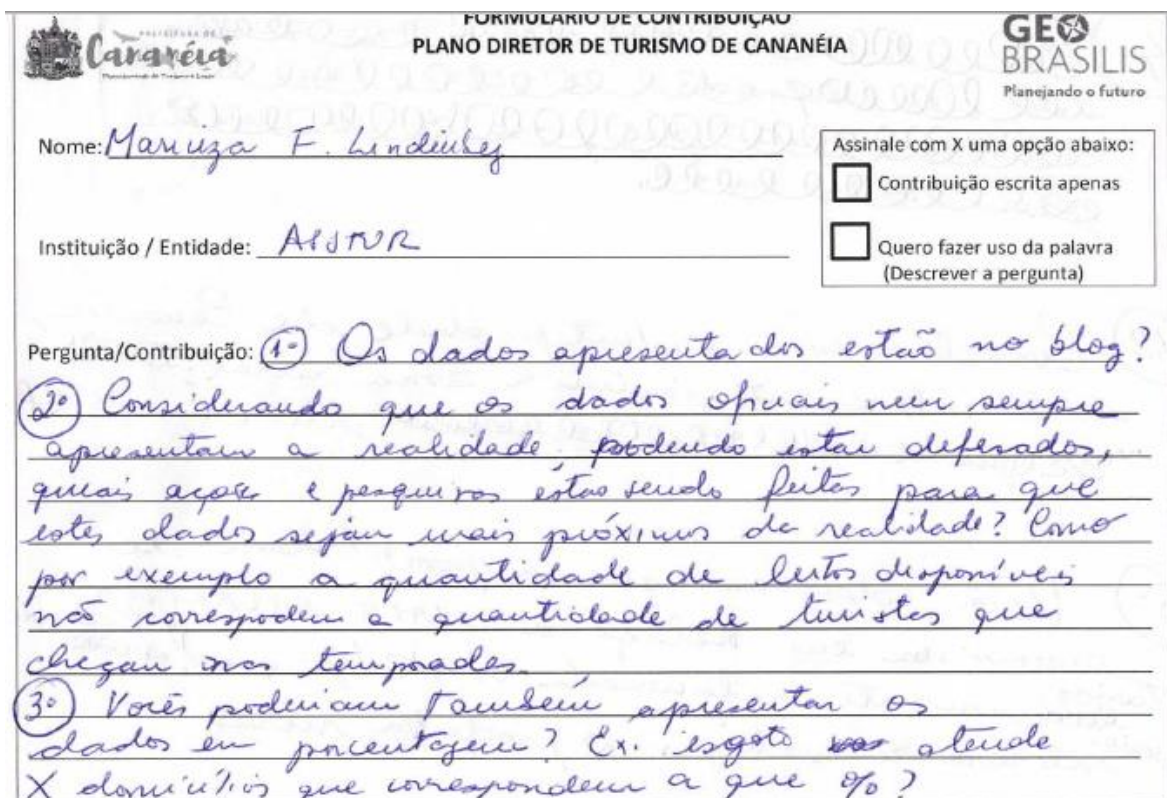 Cananéia
FORMULÁRIO DE CONTRIBUIÇÃO
PLANO DIRETOR DE TURISMO DE CANANÉIA
GEO
BRASILIS
Planejando o futuro
Nome: Mariuza F.
Assinale com X uma opção abaixo:
Contribuição escrita apenas
Instituição / Entidade:
Quero fazer uso da palavra
(Descrever a pergunta)
Pergunta/Contribuição: 1º Os dados apresentados estão no blog?
2º Considerando que os dados oficiais nem sempre
apresentam a realidade, podendo estar defesados,
quais ações e pesquisas estão sendo feitas para que
estes dados sejam mais próximos da realidade? Como
por exemplo a quantidade de leitos disponíveis
não correspodem a quantidade de turistas que
chegam nas temporadas.
3º Vocês poderiam também apresentar os
dados em porcentagem? Ex. esgoto atende
X domicílios que correspondem a que %?